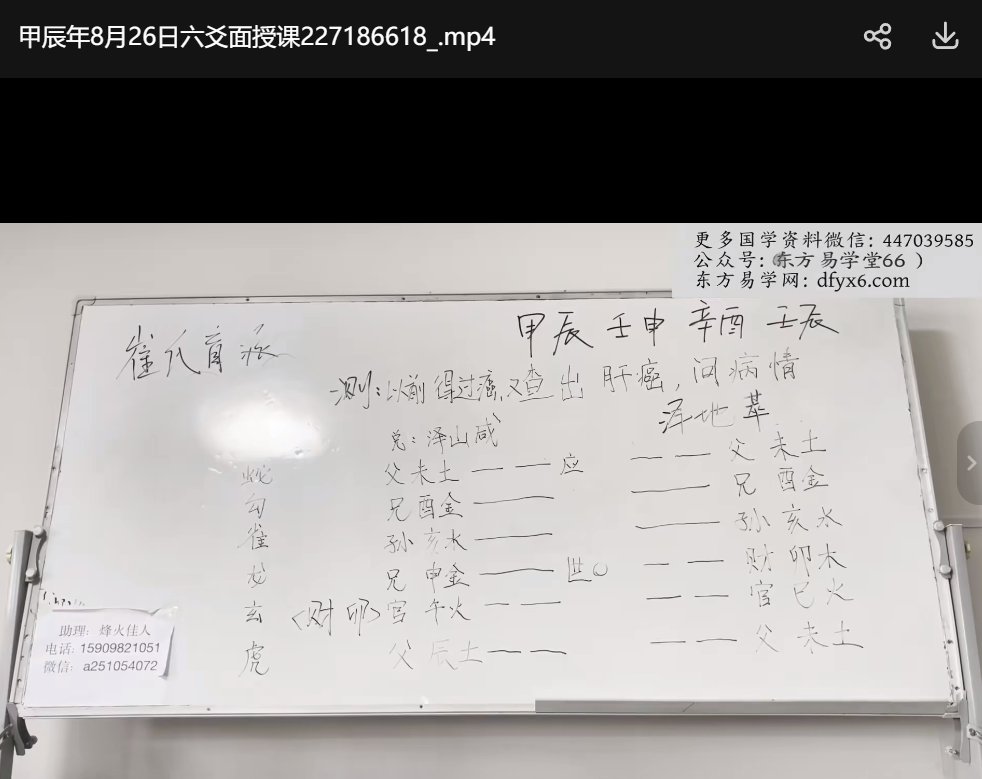 甲辰年8月26日六爻面授课227186618_.mp4
更多国学资料微信：447039585
公众号：东方易学堂66 ）
东方易学网：dfyx6.com
甲辰 壬申 辛酉 壬辰
崔氏盲派
测：以前得过癌，又查出肝癌，问病情
泽地萃
兑：泽山咸
蛇 父未土 — — 应 — — 父 未土
勾 兄酉金 —— —— 兄 酉金
雀 孙亥水 —— —— 孙 亥水
龙 兄申金 —— 世○ — — 财 卯木
玄 〈财卯〉官午火 — — — — 官 巳火
虎 父辰土 — — — — 父 未土
助理：烽火佳人
电话：15909821051
微信：a251054072